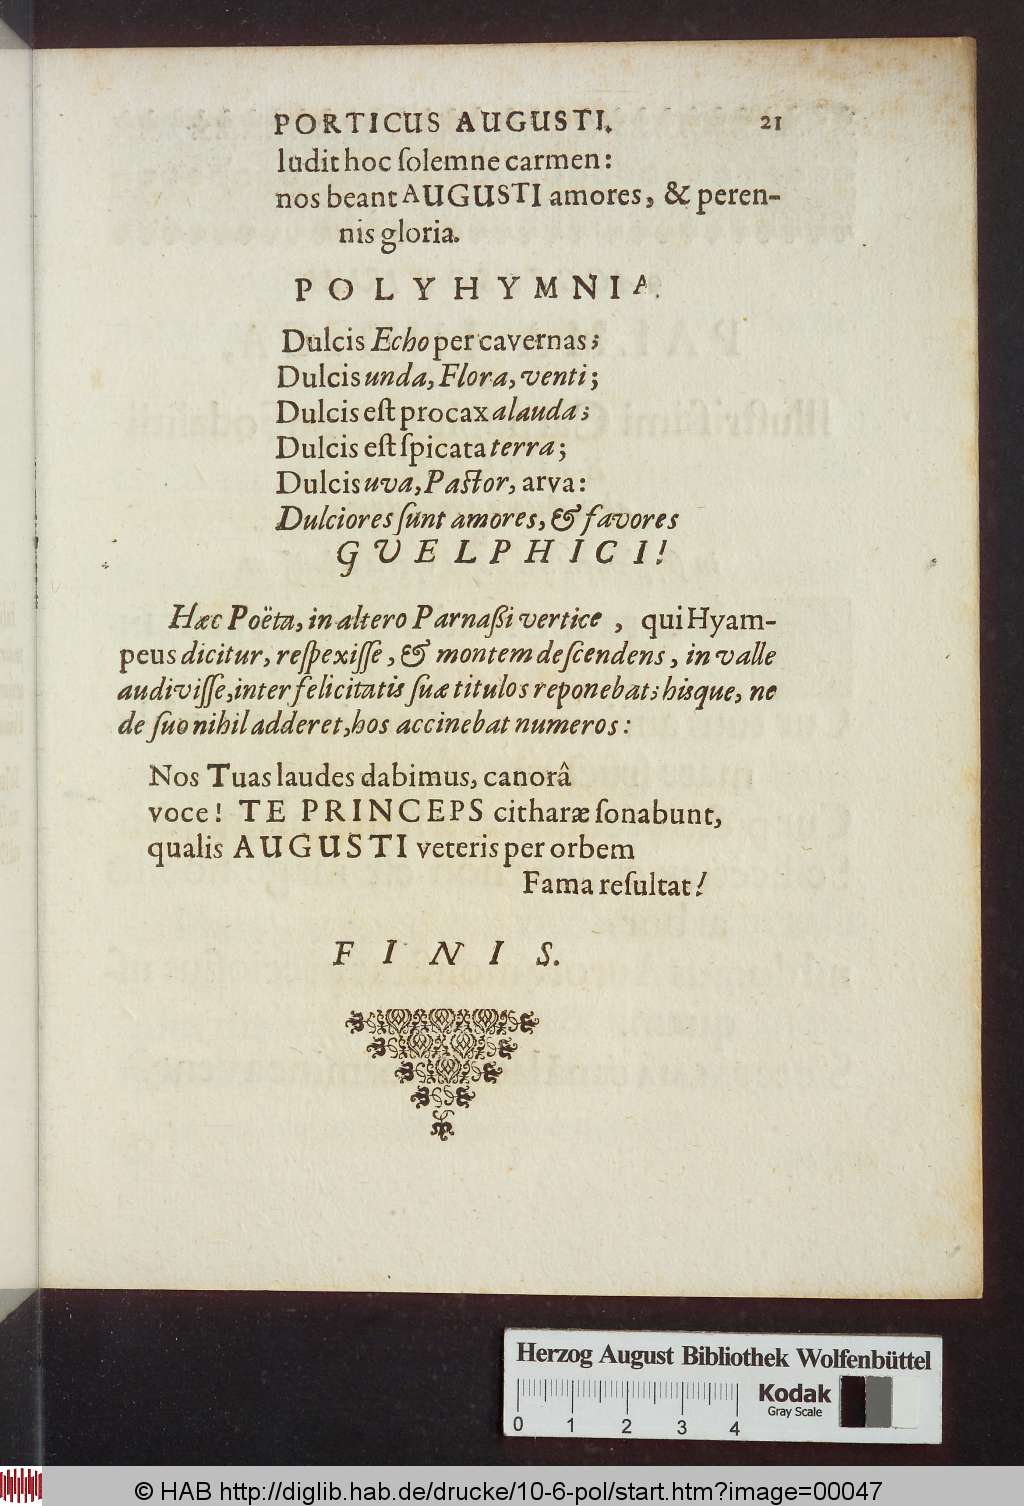 PORTICUS AUGUSTI. 21
ludit hoc ſolemne carmen:
nos beant AUGUSTI amores, & peren-
nis gloria.
POLYHYMNIA.
Dulcis Echo per cavernas;
Dulcis unda, Flora, venti;
Dulcis eſt procax alauda;
Dulcis eſt ſpicata terra;
Dulcis uva, Paſtor, arva:
Dulciores ſunt amores, & favores
GUELPHICI!
Hæc Poëta, in altero Parnaſſi vertice, qui Hyam-
peus dicitur, reſpexiſſe, & montem deſcendens, in valle
audiviſſe, inter felicitatis ſuæ titulos reponebat; hisque, ne
de ſuo nihil adderet, hos accinebat numeros:
Nos Tuas laudes dabimus, canorâ
voce! TE PRINCEPS citharæ ſonabunt,
qualis AUGUSTI veteris per orbem
Fama reſultat!
FINIS.
Herzog August Bibliothek Wolfenbüttel
Kodak
Gray Scale
0 1 2 3 4
© HAB http://diglib.hab.de/drucke/10-6-pol/start.htm?image=00047